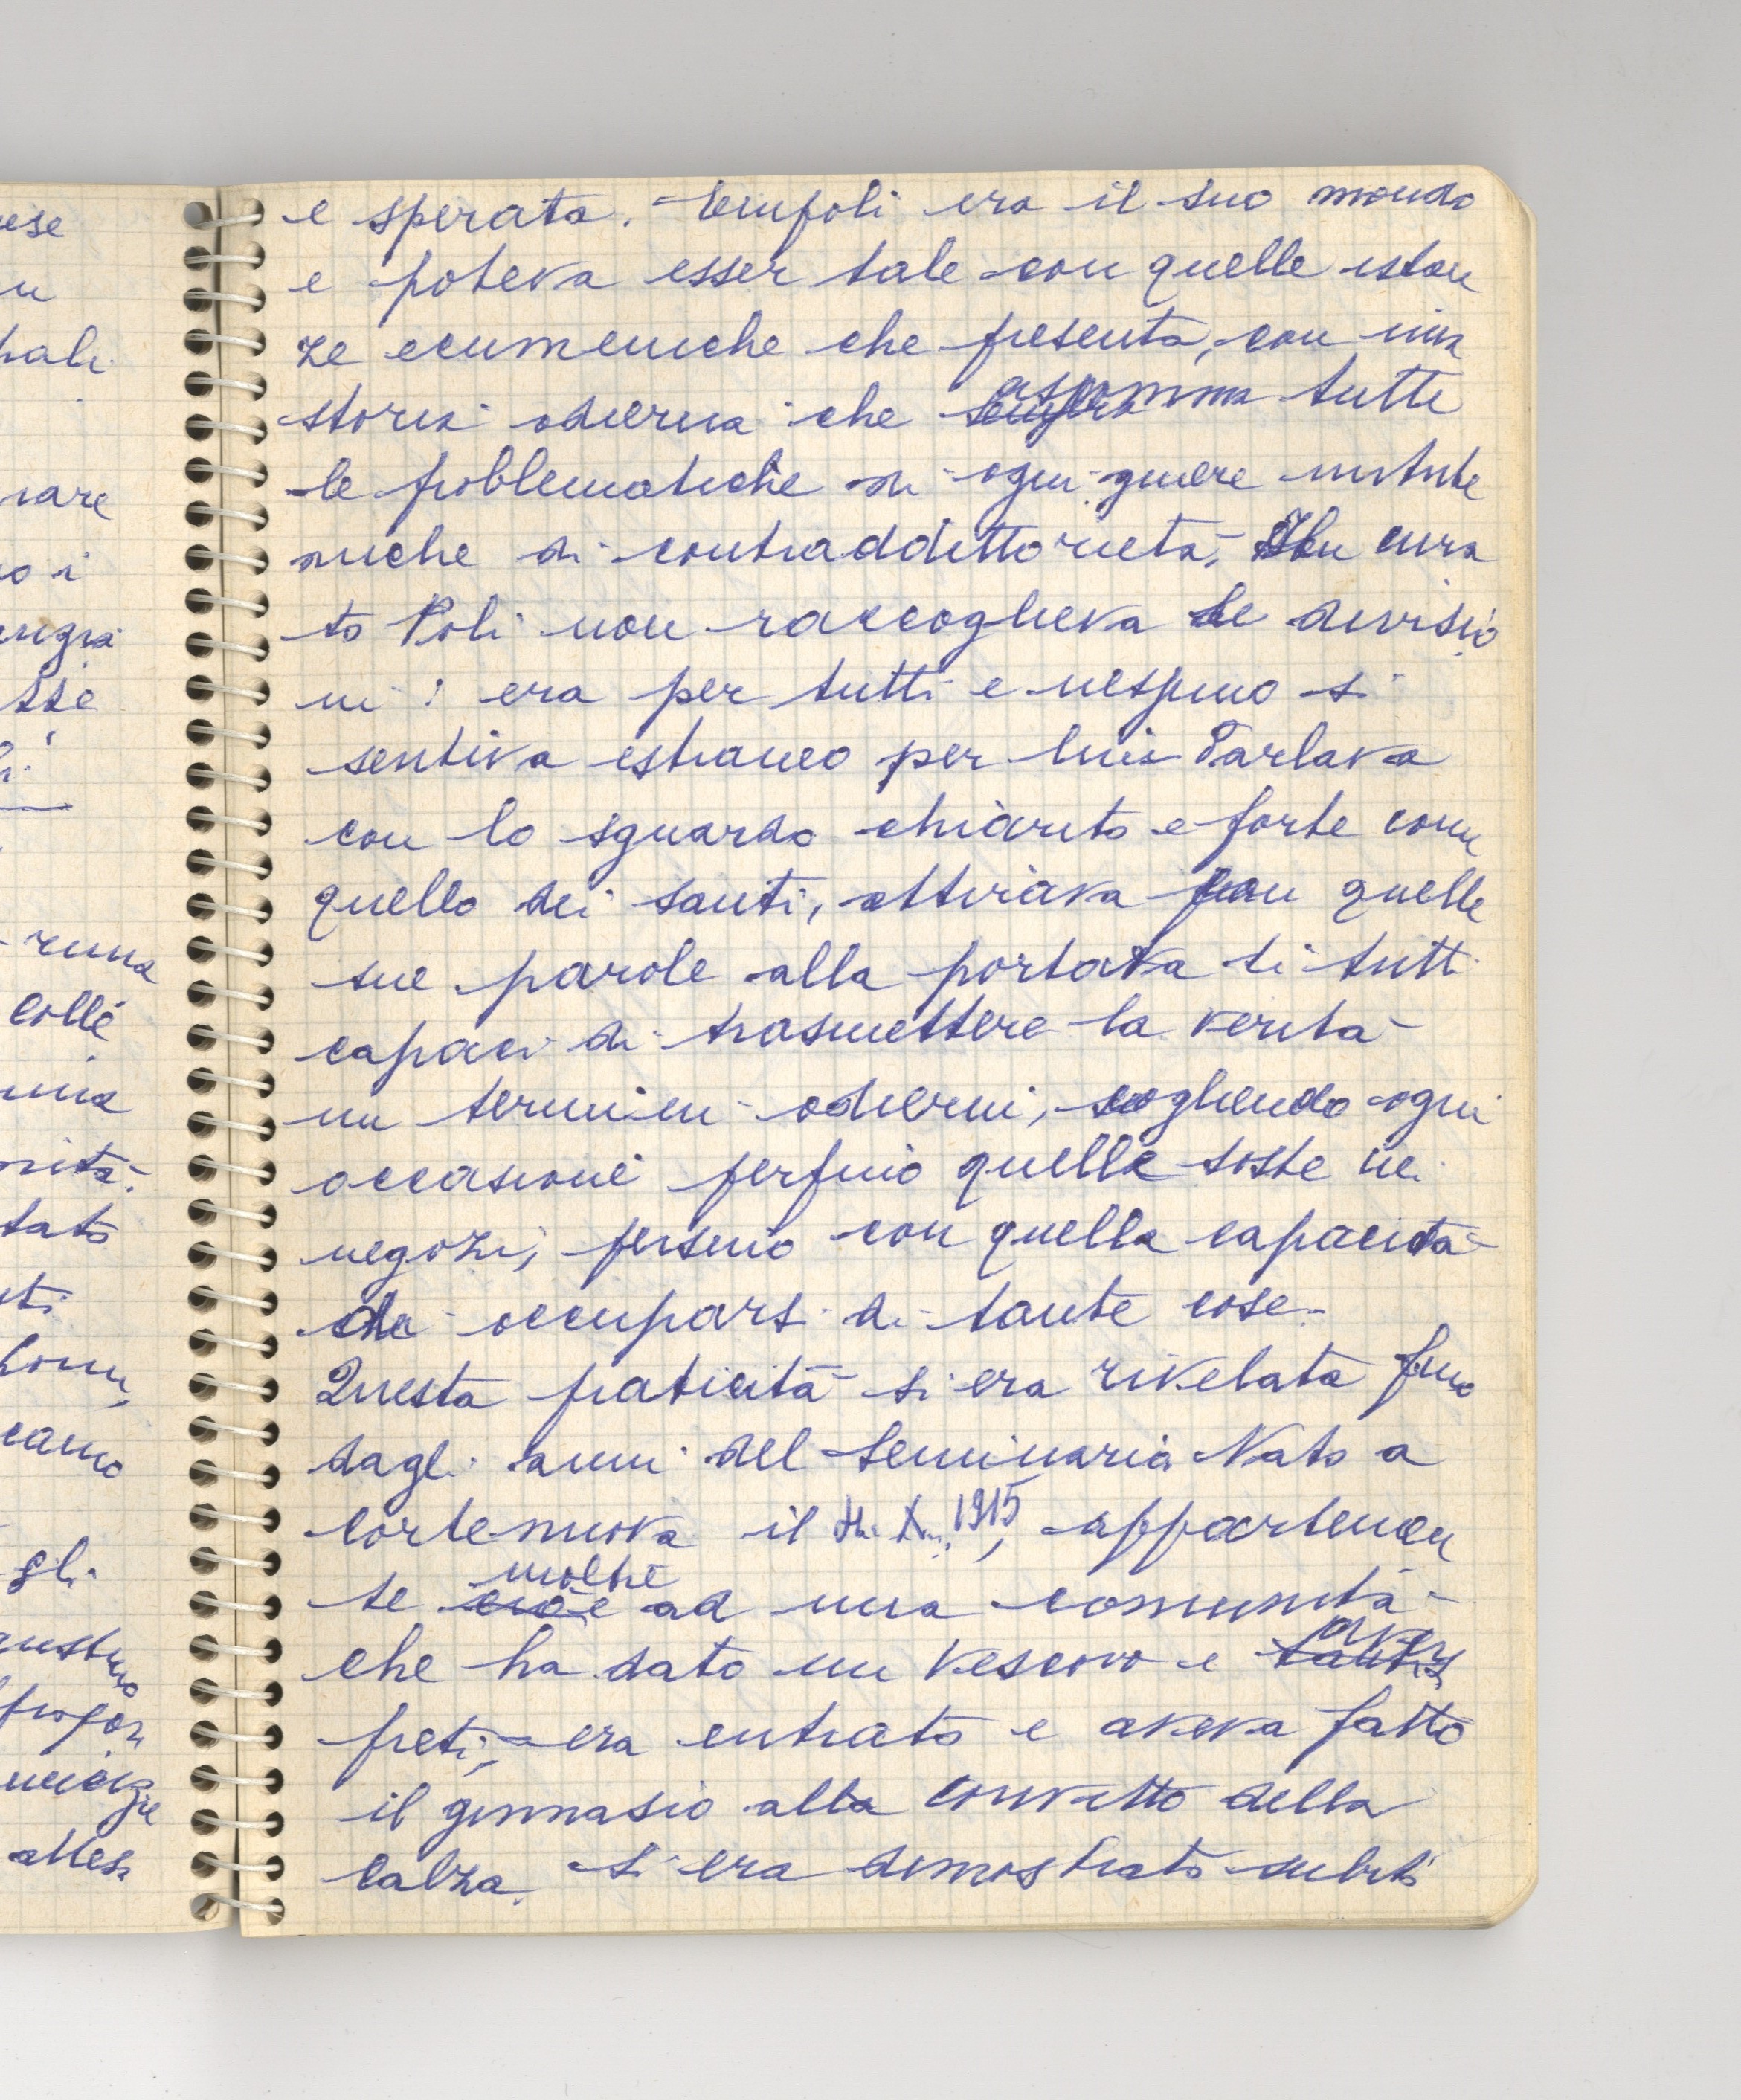 e sperata. Empoli era il suo mondo
e poteva esser tale con quelle istan
ze ecumeniche che presenta, con una
storia odierna che assomma tutte
le problematiche di ogni genere
anche di contraddittorietà. Il cura
to Poli non raccoglieva le divisio
ni : era per tutti e nessuno si
sentiva estraneo per lui. Parlava
con lo sguardo chiarito e forte come
quello dei santi, attirava con quelle
sue parole alla portata di tutti
capaci di trasmettere la verità
in termini odierni, cogliendo ogni
occasione perfino quelle soste nei
negozi, persino con quella capacità
di occuparsi di tante cose.
Questa praticità si era rivelata fino
dagli anni del Seminario. Nato a
Cortenuova il 1915, appartenen
te cioè ad una comunità
che ha dato un vescovo e
preti, era entrato e aveva fatto
il ginnasio alla convitto della
Calza. Si era dimostrato subito
ese
nare
io i
runa
colle
tato
sti
gli